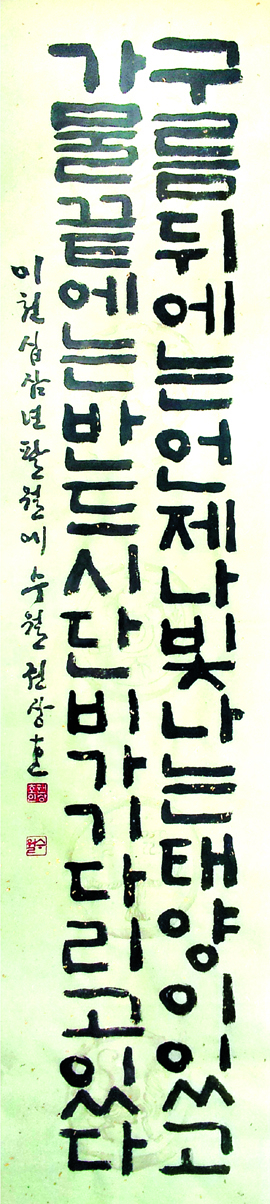 구름뒤에는언제나빛나는태양이있고
가물끝에는반드시단비가기다리고있다
이천십삼년팔월에 수월
수월